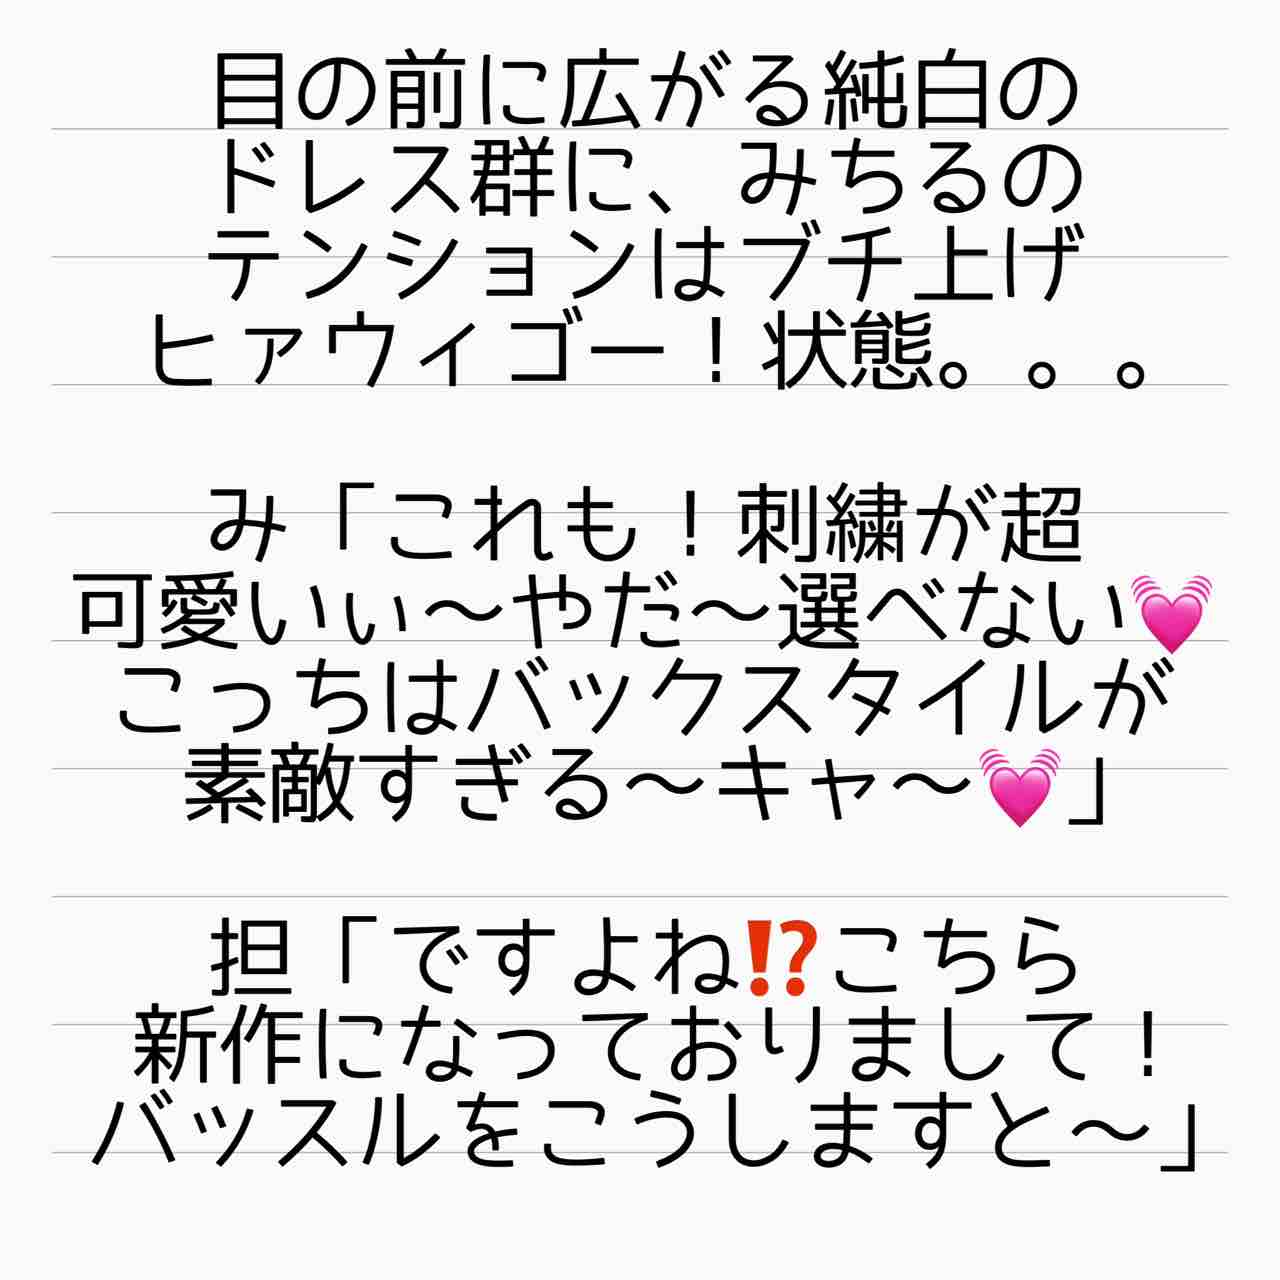 目の前に広がる純白の
ドレス群に、みちるの
テンションはブチ上げ
ヒァウィゴー！状態。。。
み「これも！刺繍が超
可愛いぃ〜やだ〜選べない💓
こっちはバックスタイルが
素敵すぎる〜キャ〜💓」
担「ですよね⁉️こちら
新作になっておりまして！
バッスルをこうしますと〜」